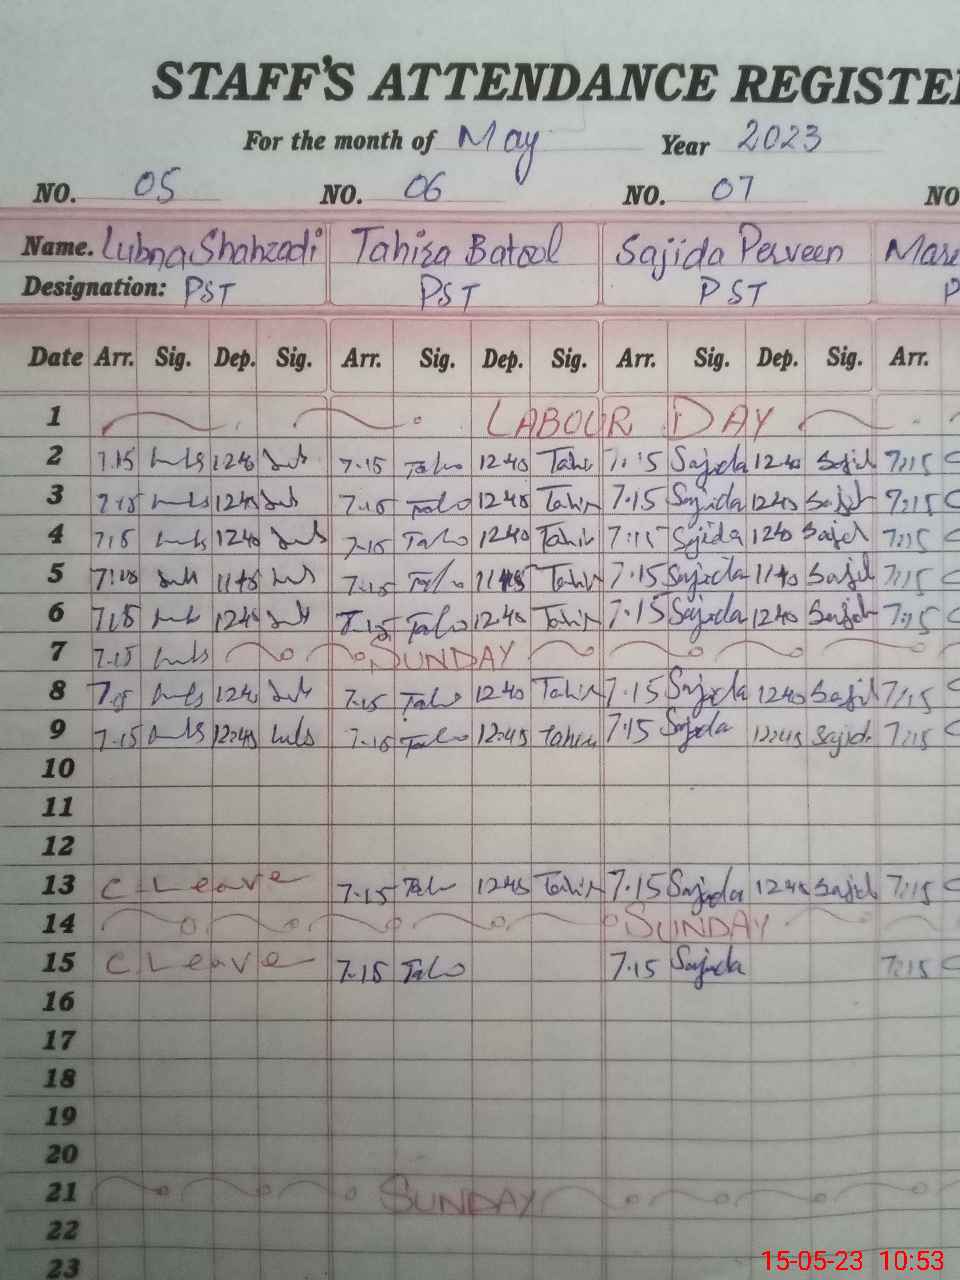 STAFF'S ATTENDANCE REGISTE
For the month of May Year 2023
NO. 05 NO. 06 NO. 07 NO
Name. Lubna Shahzadi Tahira Batool Sajida Perveen Mar
Designation: PST PST PST P
Date Arr. Sig. Dep. Sig. Arr. Sig. Dep. Sig. Arr. Sig. Dep. Sig. Arr.
1 LABOUR DAY
2 7.15 1240 7.15 1240 Tahi 7:15 Sajida 1240 Sajid 7:15
3 7.15 1240 7.15 1240 Tahir 7.15 Sajida 1240 7:15
4 7:15 1240 7.15 1240 Tahir 7:15 Sjida 1240 Sajid 7:15
5 1140 7.15 Tahir 7.15 Sajida 1140 Sajid 7:15
6 1240 7.15 1240 Tahir 7.15 Sajida 1240 7:15
7 7.15 SUNDAY
8 1240 7.15 1240 Tahir 7.15 Sajida 1240 Sajid 7:15
9 7.15 12:45 7.15 12:45 Tahir 7:15 Sajida 12:45 Sajid 7:15
10
11
12
13 C Leave 7.15 1245 Tahir 7.15 Sajida 1245 Sajid 7:15
14 SUNDAY
15 C Leave 7.15 7.15 Sajida 7:15
16
17
18
19
20
21 SUNDAY
22
23
15-05-23 10:53